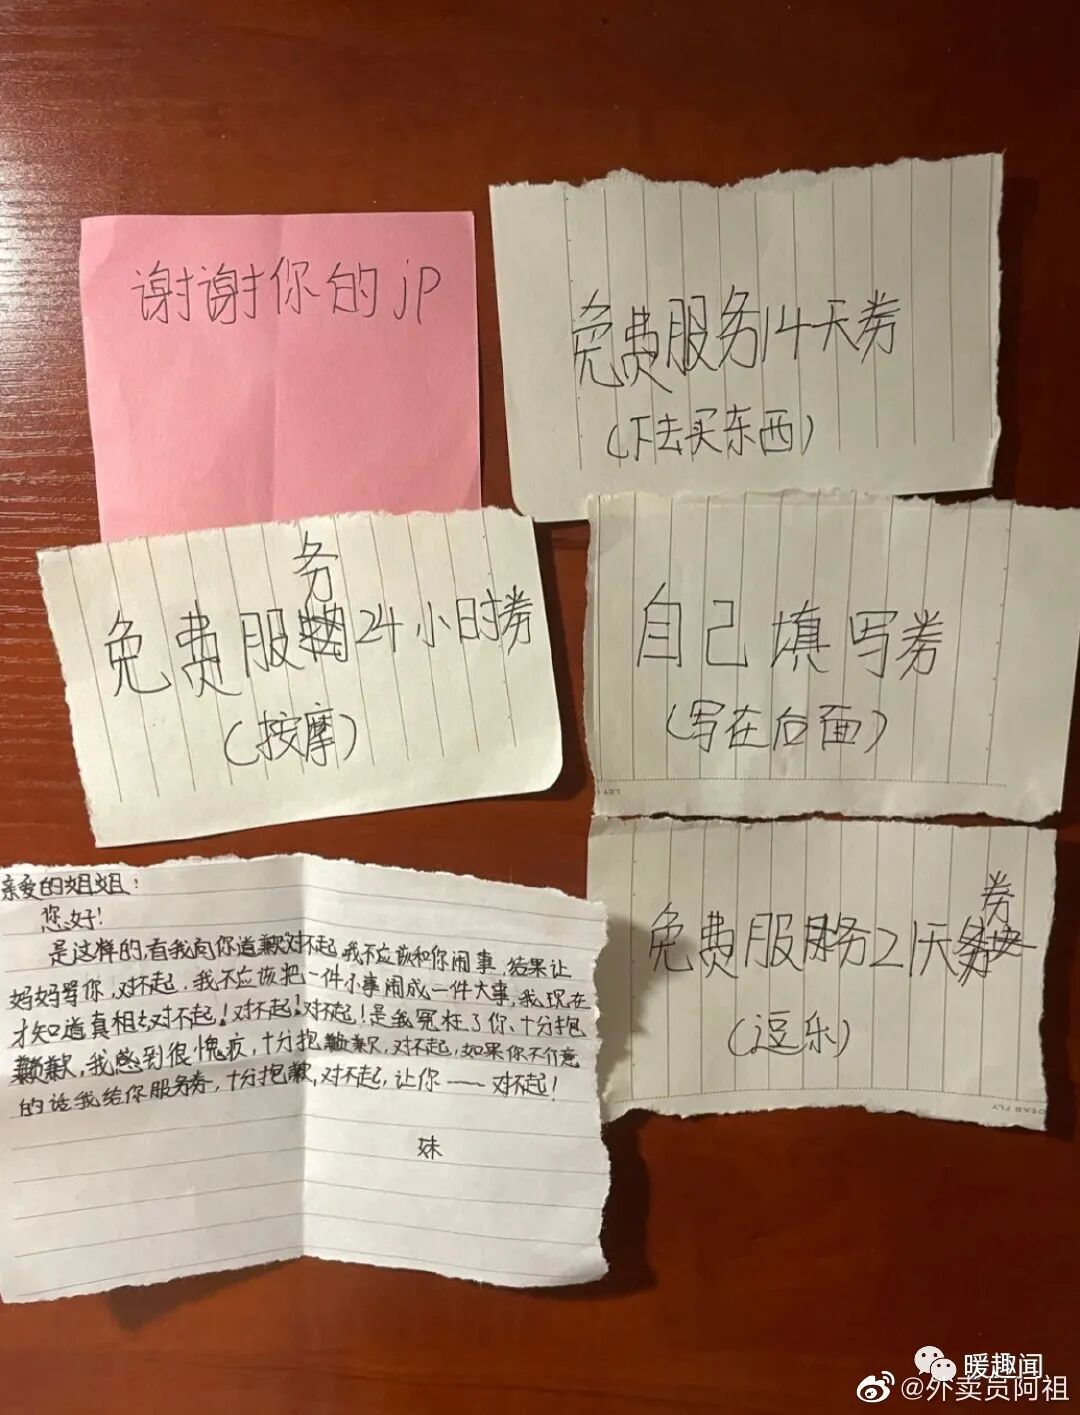 谢谢你的jp
免费服务14天券
(下去买东西)
务
免费服24小时券
(按摩)
自己填写券
(写在后面)
券
免费服务21天
(逗乐)
亲爱的姐姐:
您好!
是这样的,看我向你道歉对不起,我不应该和你闹事,结果让
妈妈骂你,对不起,我不应该把一件小事闹成一件大事,我现在
才知道真相,对不起!对不起!对不起!是我冤枉了你、十分抱
歉,我感到很愧疚,十分抱歉,对不起,如果你不介意
的话我给你服务券,十分抱歉,对不起,让你——对不起!
妹
DEAD FLY
暖趣闻
@外卖员阿祖